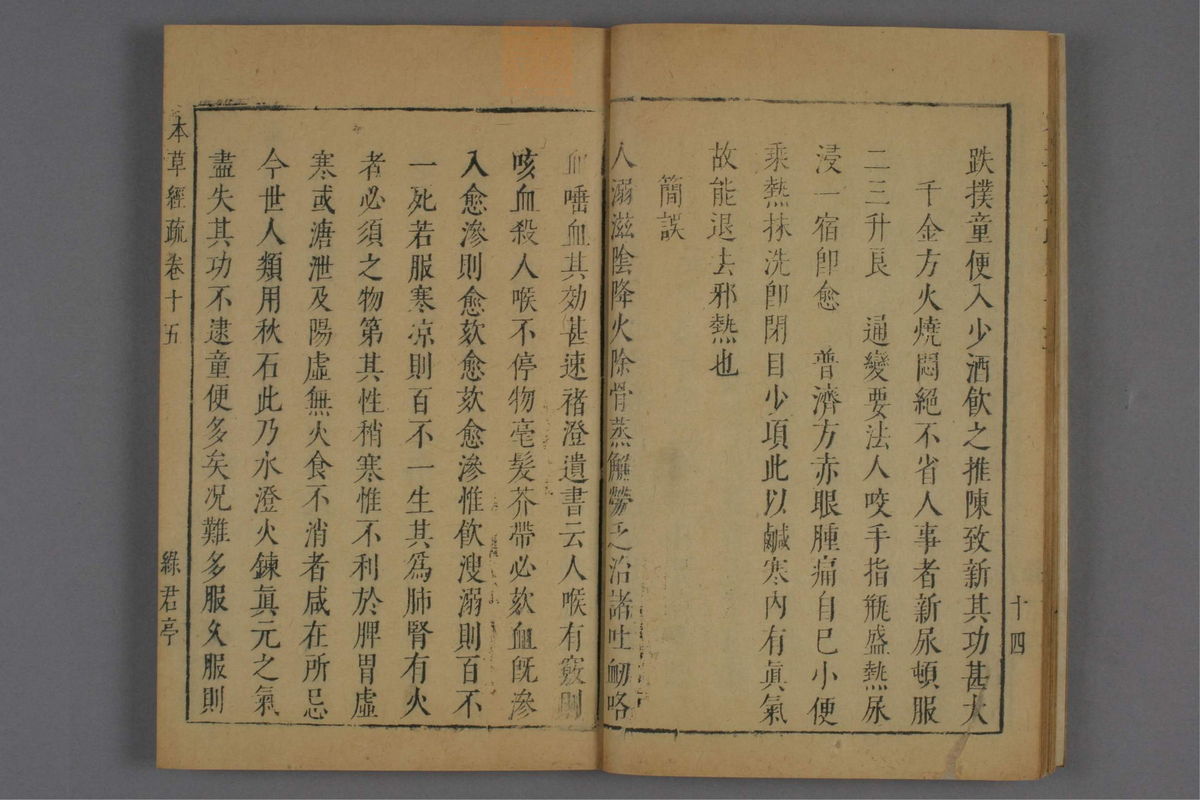 跌撲童便入少酒飲之推陳致新其功甚大
千金方火燒悶絕不省人事者新尿頓服
二三升良　通變要法人咬手指瓶盛熱尿
浸一宿卽愈　普濟方赤眼腫痛自巳小便
乘熱抹洗卽閉目少項此以鹹寒內有眞氣
故能退去邪熱也
簡誤
人溺滋陰降火除骨蒸解勞乏治諸吐衂咯
十四
血唾血其効甚速褚澄遺書云人喉有竅則
咳血殺人喉不停物毫髮芥帶必欬血旣滲
入愈滲則愈欬愈欬愈滲惟飲溲溺則百不
一死若服寒凉則百不一生其爲肺腎有火
者必須之物第其性稍寒惟不利於脾胃虛
寒或溏泄及陽虛無火食不消者咸在所忌
今世人類用秋石此乃水澄火鍊眞元之氣
盡失其功不逮童便多矣况難多服久服則
本草經疏卷十五
綠君亭